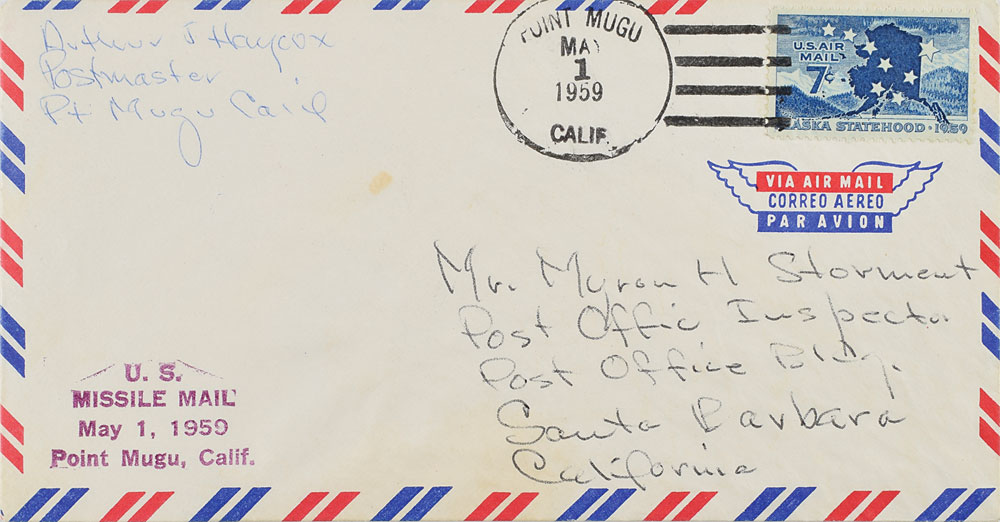 Arthur J Haycox
Postmaster
Pt Mugu Calif
POINT MUGU
MAY
1
1959
CALIF.
U.S. AIR
MAIL
7¢
ALASKA STATEHOOD · 1959
VIA AIR MAIL
CORREO AEREO
PAR AVION
Mr. Myron H Storment
Post Offic Inspector
Post Office Bldg.
Santa Barbara
California
U. S.
MISSILE MAIL
May 1, 1959
Point Mugu, Calif.